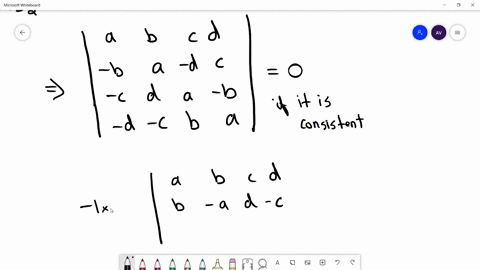 Microsoft Whiteboard
AV
a b c d
-b a -d c
⇒ -c d a -b = 0
-d -c b a
if it is
consistent
a b c d
-1x b -a d -c